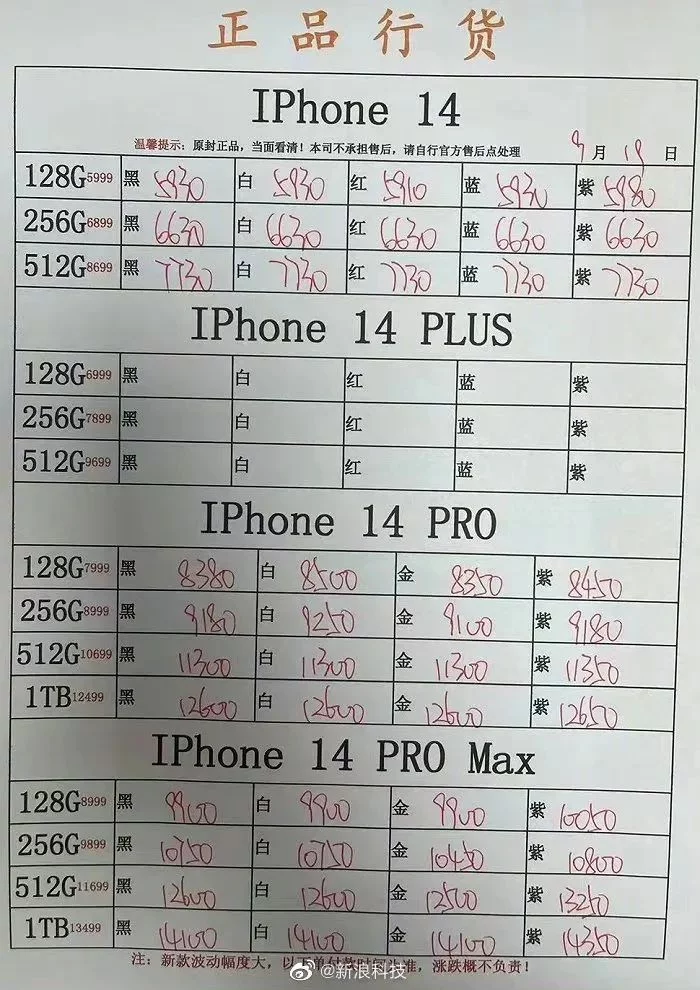 正品行货
IPhone 14
温馨提示：原封正品，当面看清！本司不承担售后，请自行官方售后点处理 9月19日
128G5999 黑 5930 白 5930 红 5910 蓝 5930 紫 5980
256G6899 黑 6630 白 6630 红 6630 蓝 6630 紫 6630
512G8699 黑 7730 白 7730 红 7730 蓝 7730 紫 7730
IPhone 14 PLUS
128G6999 黑 白 红 蓝 紫
256G7899 黑 白 红 蓝 紫
512G9699 黑 白 红 蓝 紫
IPhone 14 PRO
128G7999 黑 8380 白 8500 金 8350 紫 8450
256G8999 黑 9180 白 9250 金 9100 紫 9180
512G10699 黑 11300 白 11300 金 11300 紫 11350
1TB12499 黑 12600 白 12600 金 12600 紫 12650
IPhone 14 PRO Max
128G8999 黑 9900 白 9900 金 9900 紫 10050
256G9899 黑 10750 白 10750 金 10450 紫 10800
512G11699 黑 12600 白 12600 金 12500 紫 13250
1TB13499 黑 14100 白 14100 金 14100 紫 14350
注：新款波动幅度大，以下单付款时间为准，涨跌概不负责！
@新浪科技